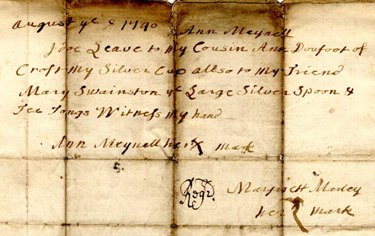 August ye 8 1740 Ann Meynell
I doe Leave to my Cousin Ann Doufoot of
Croft My Silver Cup allso to my Friend
Mary Swainston ye Large Silver Spoon &
Tee Tongs Witness my hand
Ann Meynell her X mark
Margrett Morley
her mark